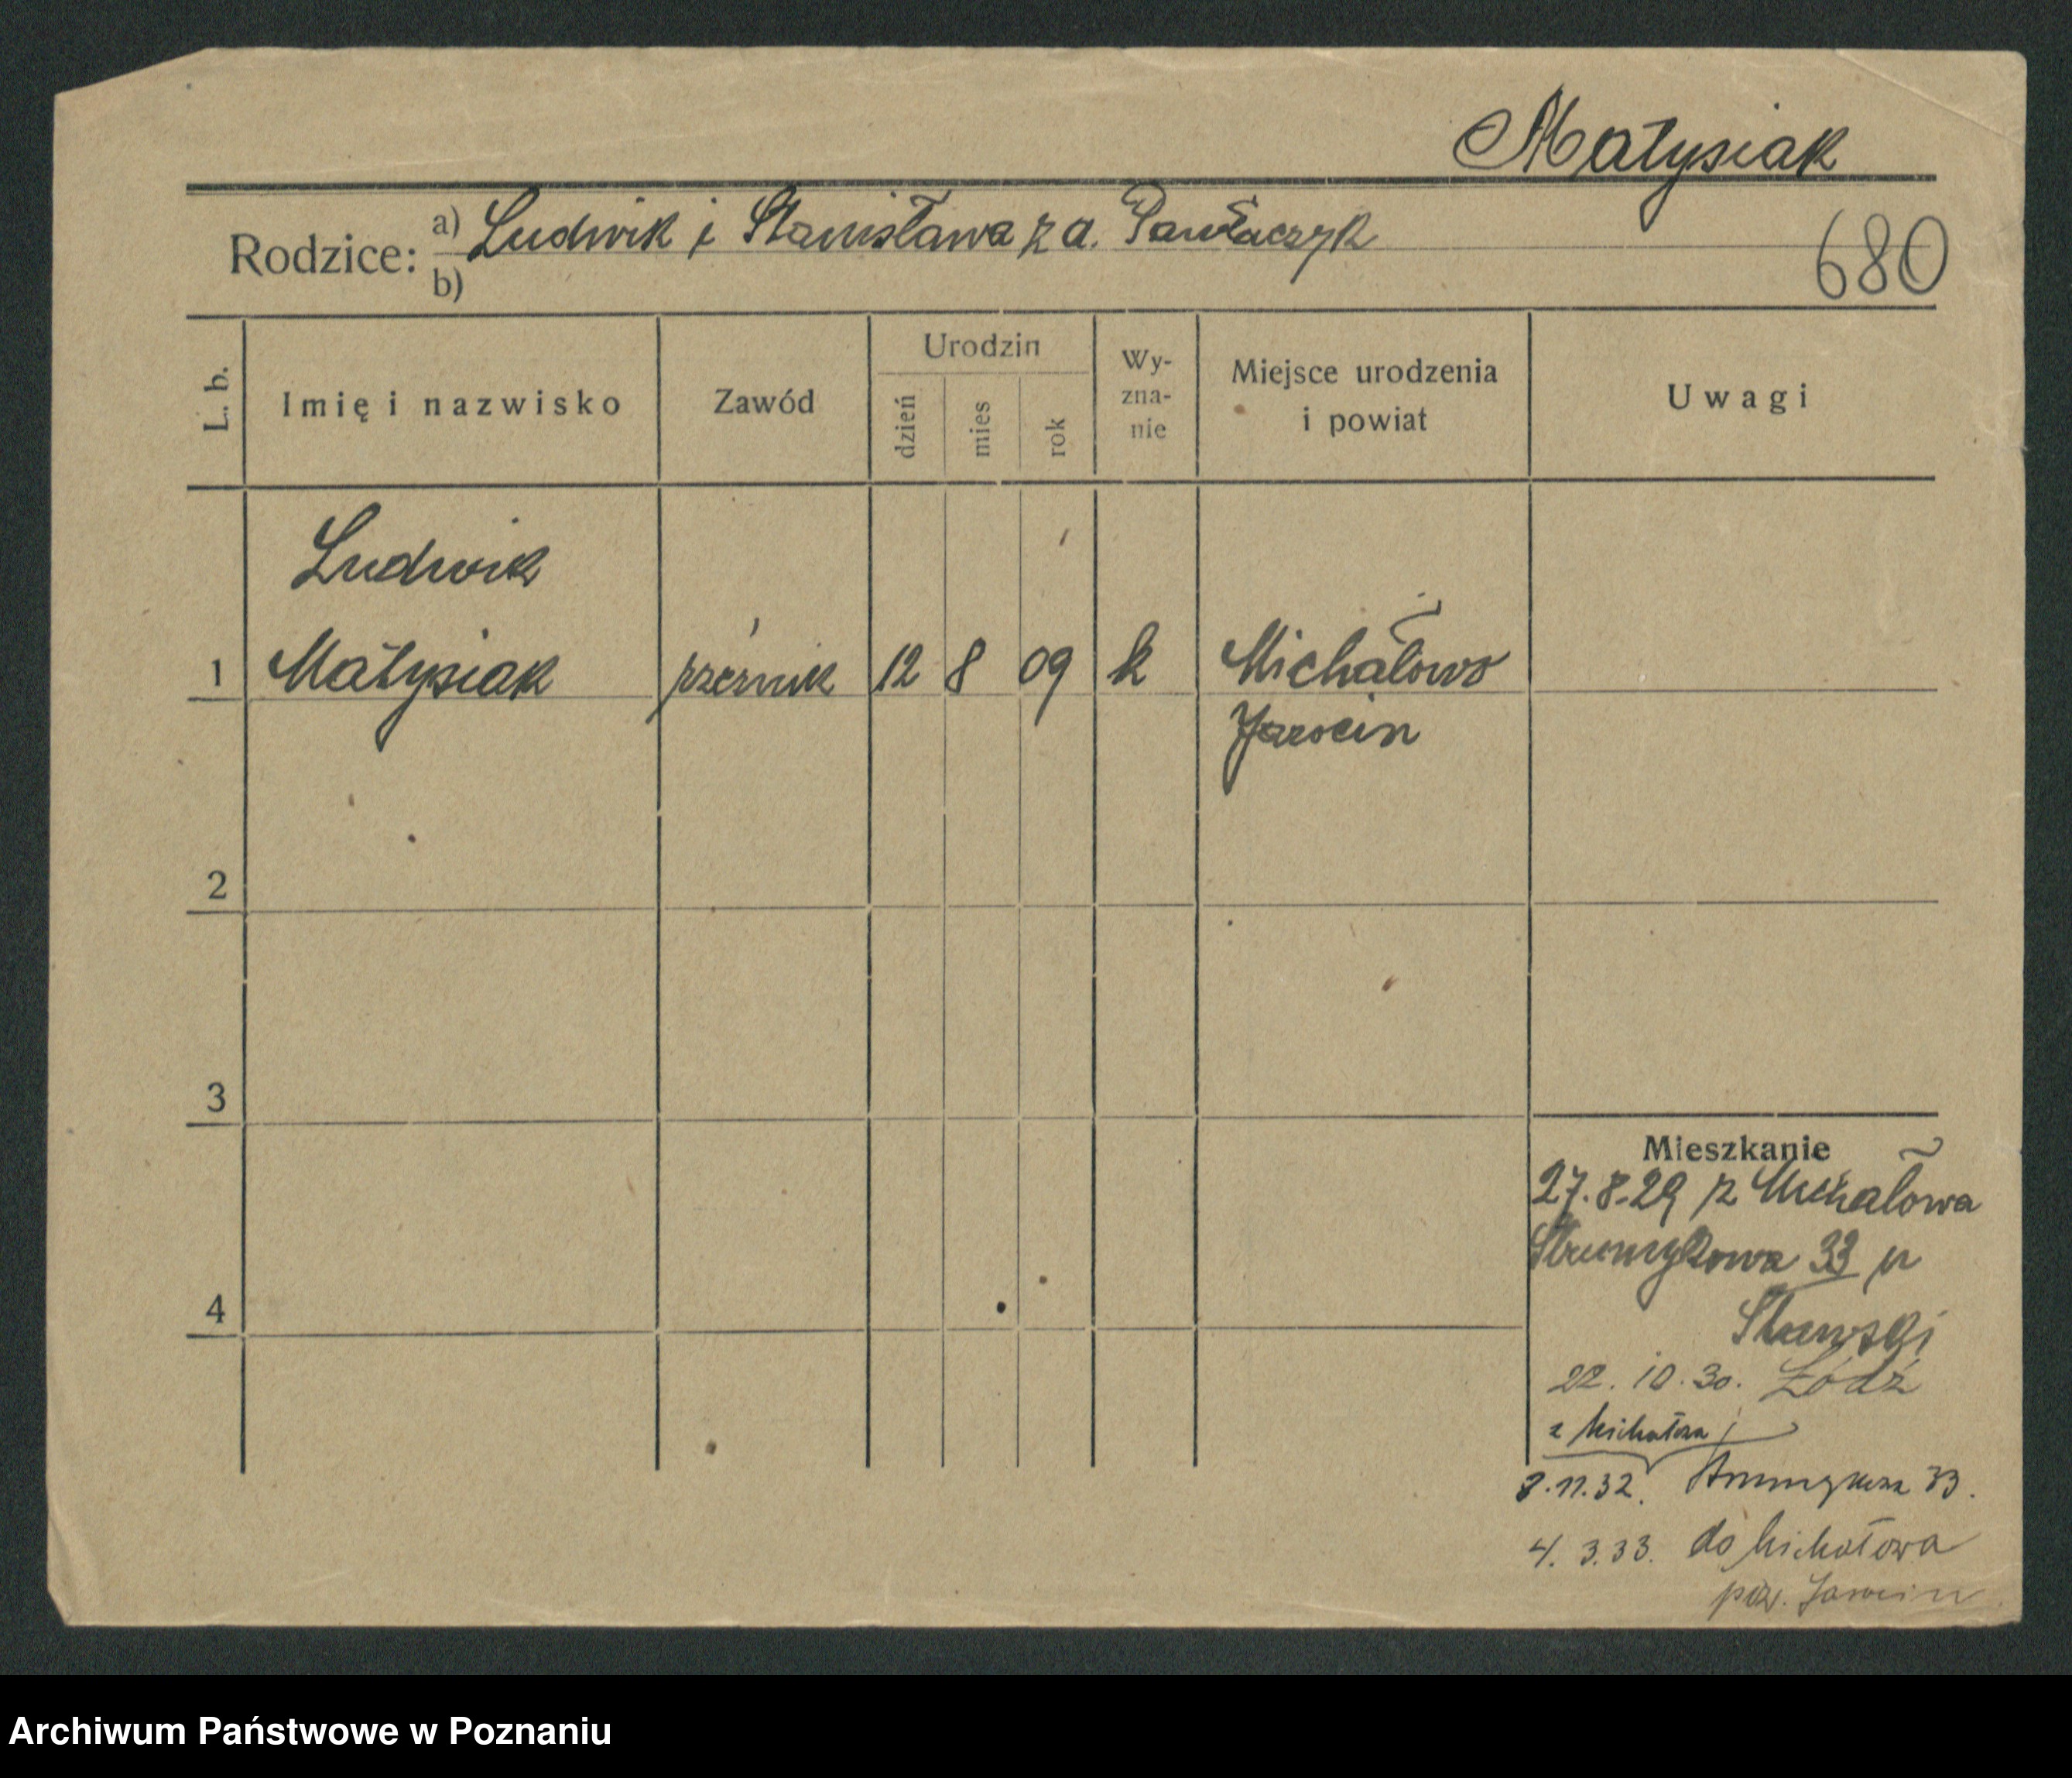 Małysiak
Rodzice: a) Ludwik i Stanisława z d. Pawlaczyk
b)
680
L. b.
Imię i nazwisko
Zawód
Urodzin
dzień
mies
rok
Wy-
zna-
nie
Miejsce urodzenia
i powiat
Uwagi
Ludwik
1 Małysiak rzeźnik 12 8 09 k Michałowo
Jarocin
2
3
4
Mieszkanie
27.8.29 z Michałowa
Strumykowa 33 p
22.10.30. Łódź
z Michałowa
8.11.32. Strumykowa 33.
4.3.33. do Michałowa
pow. Jarocin
Archiwum Państwowe w Poznaniu